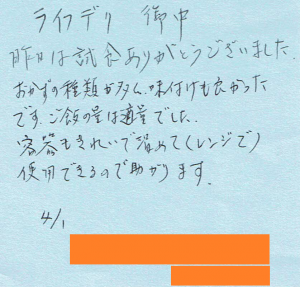 ライフデリ 御中
昨日は試食ありがとうございました.
おかずの種類が多く、味付けも良かった
です。ご飯の量は適量でした.
容器もきれいで温めて(レンジで)
使用できるので助かります.
4/1